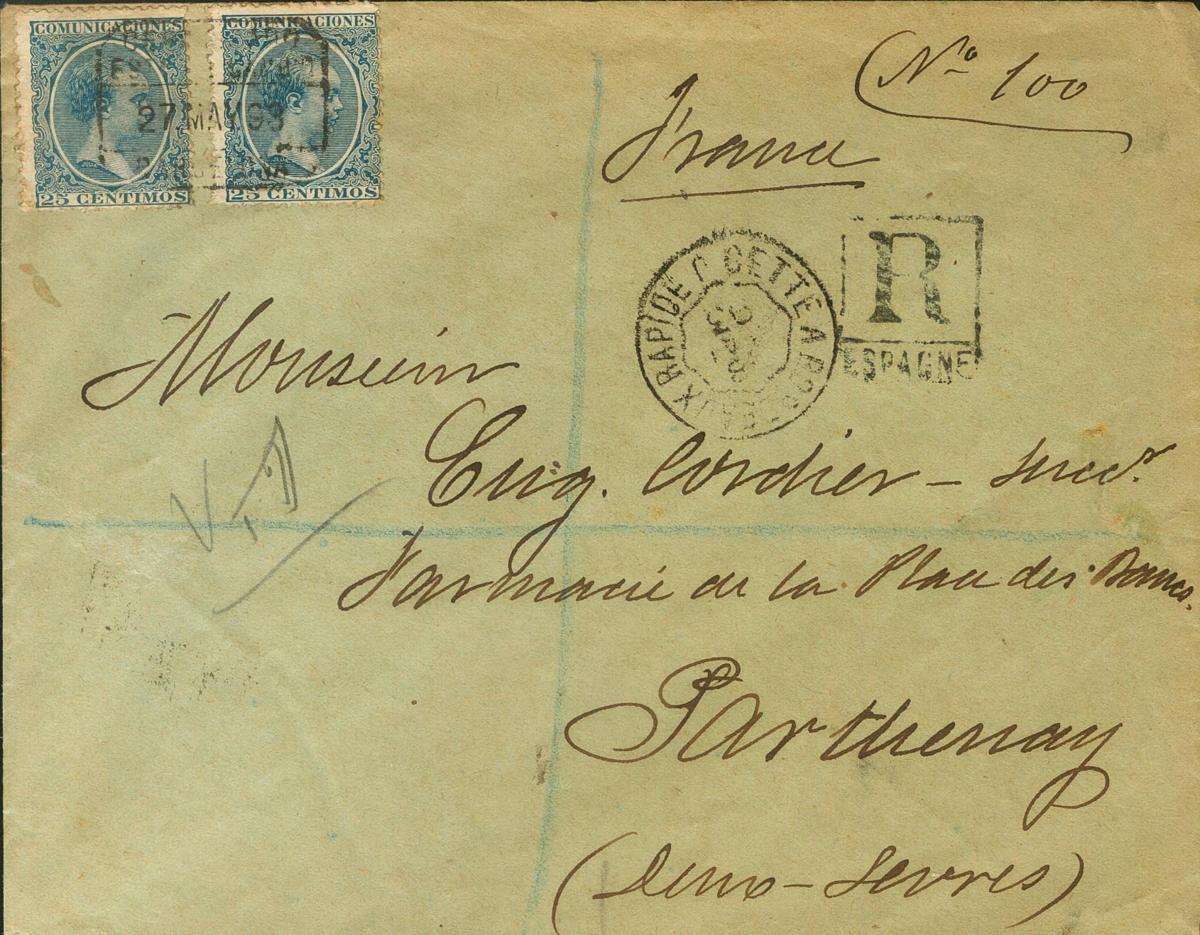 COMUNICACIONES
COMUNICACIONES
27 MAY 93
25 CENTIMOS
25 CENTIMOS
Nº 100
France
R
ESPAGNE
RAPIDE CETTE A BORDEAUX
Monsieur
Eug. Cordier – succr.
Farmacie de la Place des Bancs.
Parthenay
(Deux-Sevres)